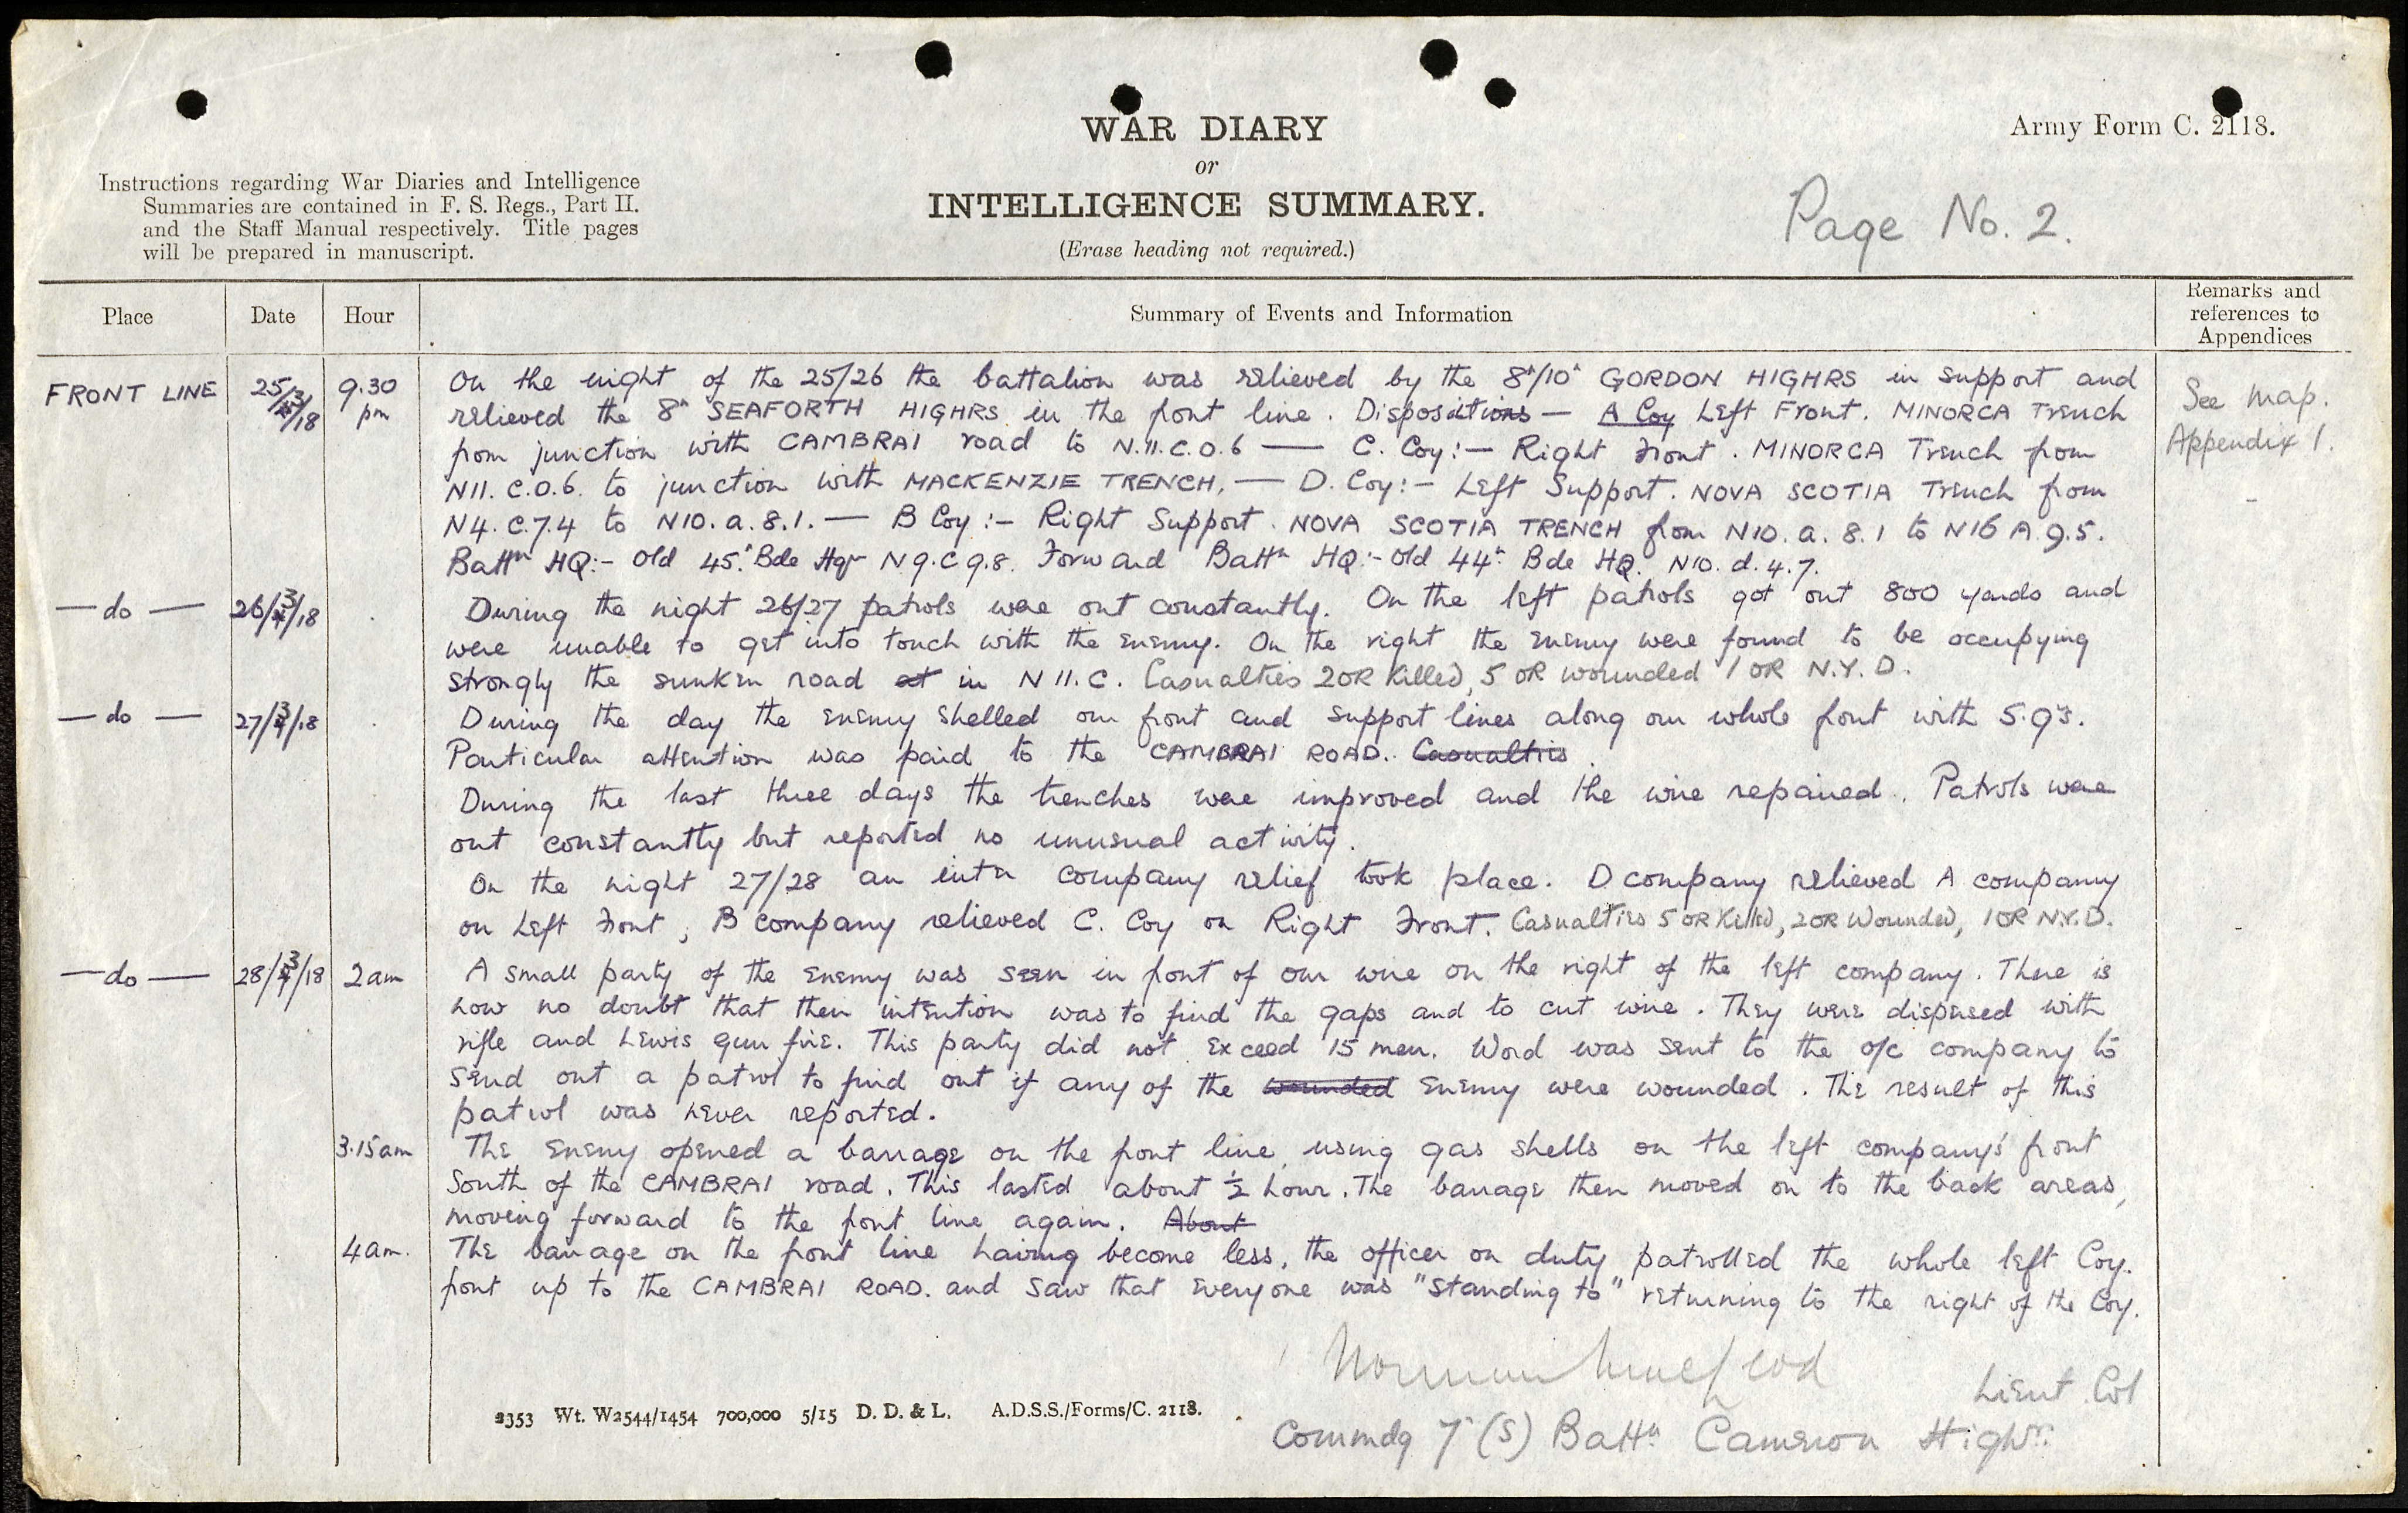 WAR DIARY
Army Form C. 2118.
or
Instructions regarding War Diaries and Intelligence
Summaries are contained in F. S. Regs., Part II.
and the Staff Manual respectively. Title pages
will be prepared in manuscript.
INTELLIGENCE SUMMARY.
(Erase heading not required.)
Page No. 2.
Place Date Hour Summary of Events and Information Remarks and references to Appendices
FRONT LINE 25/3/18 9.30 pm On the night of the 25/26 the battalion was relieved by the 8th/10th GORDON HIGHRS in support and
relieved the 8th SEAFORTH HIGHRS in the front line. Dispositions — A Coy Left Front. MINORCA Trench
from junction with CAMBRAI road to N.11.C.0.6 — C. Coy:- Right Front. MINORCA Trench from
N11.C.0.6. to junction with MACKENZIE TRENCH. — D. Coy:- Left Support. NOVA SCOTIA Trench from
N4.C.7.4 to N10.a.8.1. — B Coy:- Right Support. NOVA SCOTIA TRENCH from N10.a.8.1 to N16 A.9.5.
Battn HQ:- Old 45th Bde Hqr N9.C9.8. Forward Battn HQ:- Old 44th Bde HQ. N10.d.4.7.
See Map.
Appendix 1.
— do — 26/3/18 During the night 26/27 patrols were out constantly. On the left patrols got out 800 yards and
were unable to get into touch with the enemy. On the right the enemy were found to be occupying
strongly the sunken road at in N11.C. Casualties 2OR Killed, 5 OR wounded 1 OR N.Y.D.
— do — 27/3/18 During the day the enemy shelled our front and support lines along our whole front with 5.9's.
Particular attention was paid to the CAMBRAI ROAD. Casualties
During the last three days the trenches were improved and the wire repaired. Patrols were
out constantly but reported no unusual activity.
On the night 27/28 an inter company relief took place. D company relieved A company
on Left Front, B company relieved C. Coy on Right Front. Casualties 5 OR Killed, 2 OR Wounded, 1 OR N.Y.D.
— do — 28/3/18 2am A small party of the enemy was seen in front of our wire on the right of the left company. There is
now no doubt that their intention was to find the gaps and to cut wire. They were dispersed with
rifle and Lewis gun fire. This party did not exceed 15 men. Word was sent to the o/c company to
send out a patrol to find out if any of the wounded enemy were wounded. The result of this
patrol was never reported.
3.15am The enemy opened a barrage on the front line, using gas shells on the left company's front
South of the CAMBRAI road. This lasted about ½ hour. The barrage then moved on to the back areas,
moving forward to the front line again. About
4am. The barrage on the front line having become less, the officer on duty patrolled the whole left Coy.
front up to the CAMBRAI ROAD. and saw that everyone was "standing to" returning to the right of the Coy.
Norman MacLeod
Lieut. Col
Commdg 7th (S) Battn Cameron Highrs.
2353 Wt. W2544/1454 700,000 5/15 D. D. & L. A.D.S.S./Forms/C. 2118.